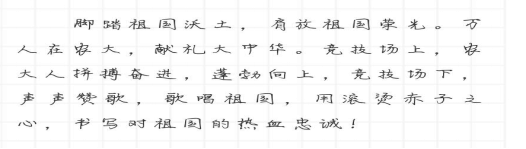 脚踏祖国沃土，肩放祖国荣光。万
人在容大，献礼大中华。竞技场上，容
大人拼搏奋进，蓬勃向上，竞技场下，
声声赞歌，歌唱祖国，用滚烫赤子之
心，书写对祖国的热血忠诚！